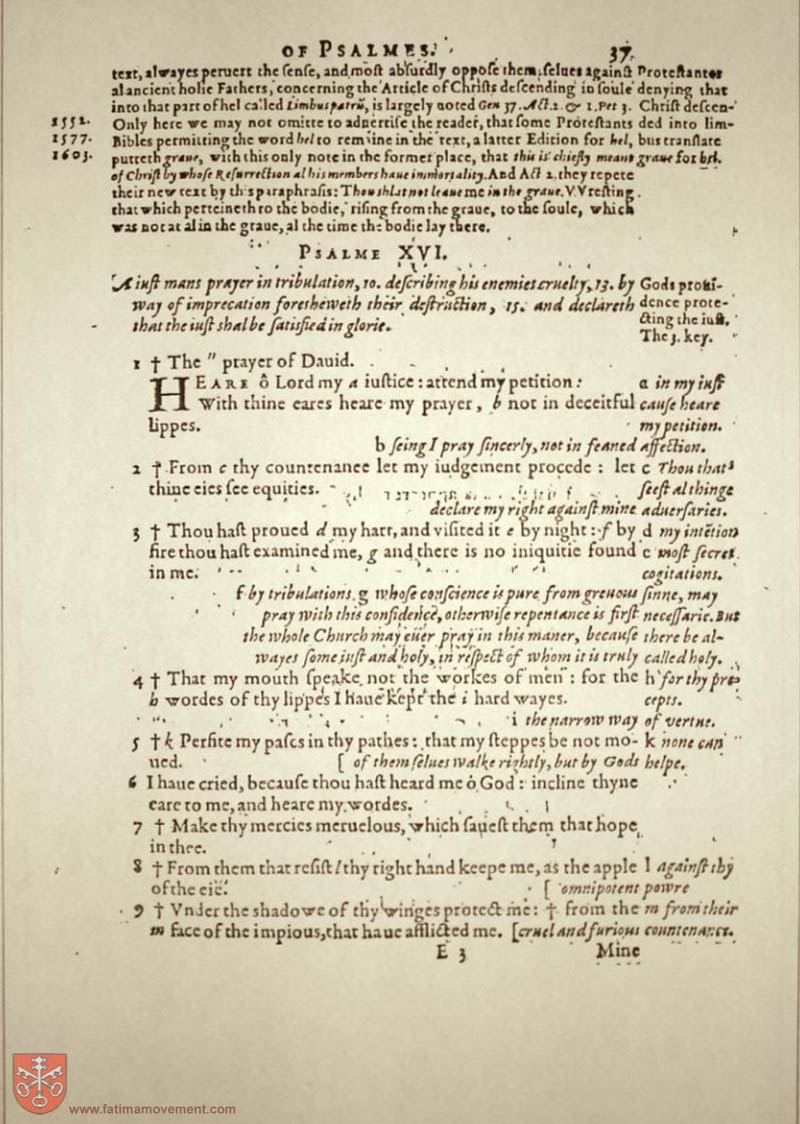 OF PSALMES. 37
text, alwayes peruert the sense, and most absurdly oppose them selues against Protestantes
al ancient holie Fathers, concerning the Article of Christs descending in soule denying that
into that part of hel called Limbus patrũ, is largely noted Gen 37. Act. 2. & 1. Pet 3. Christ descen-
1552. Only here we may not omitte to aduertise the reader, that some Protestants ded into lim-
1577. Bibles permitting the word hel to remaine in the text, a latter Edition for hel, bus translate
1603. putteth graue, with this only note in the former place, that this is chiefly meant graue for hel.
of Christ by whose Resurrection al his members haue immortality. And Act 2. they repete
their new text by this paraphrasis: Thou shalt not leaue me in the graue. VVresting
that which perteineth to the bodie, rising from the graue, to the soule, which
was not at al in the graue, al the time the bodie lay there.
PSALME XVI.
A iust mans prayer in tribulation, 10. describing his enemies cruelty, 13. by Gods proui-
way of imprecation foresheweth their destruction, 15. and declareth dence prote-
that the iust shal be satisfied in glorie. cting the iust.
The 3. key.
1 † The " prayer of Dauid.
HEARE ô Lord my a iustice: attend my petition: a in my iust
With thine eares heare my prayer, b not in deceitful cause heare
lippes. my petition.
b seing I pray sincerly, not in feaned affection.
2 † From c thy countenance let my iudgement procede: let c Thou that
thine eies see equities. seest al thinge
declare my right against mine aduersaries.
3 † Thou hast proued d my hart, and visited it e by night: f by d my intẽtion
fire thou hast examined me, g and there is no iniquitie found e most secret
in me. cogitations.
f by tribulations. g whose conscience is pure from greuous sinne, may
pray with this confidence, otherwise repentance is first necessarie. But
the whole Church may euer pray in this maner, because there be al-
wayes some iust and holy, in respect of whom it is truly called holy.
4 † That my mouth speake not the workes of men: for the h for thy pre
h wordes of thy lippes I haue kept the i hard wayes. cepts.
i the narrow way of vertue.
5 † k Perfite my pases in thy pathes: that my steppes be not mo- k none can
ued. [ of them selues walke rightly, but by Gods helpe.
6 I haue cried, because thou hast heard me ô God: incline thyne
eare to me, and heare my wordes.
7 † Make thy mercies meruelous, which sauest them that hope
in thee.
8 † From them that resist l thy right hand keepe me, as the apple l against thy
of the eie. [ omnipotent powre
9 † Vnder the shadowe of thy winges protect me: † from the m from their
m face of the impious, that haue afflicted me. [cruel and furious countenance.
E 3 Mine
www.fatimamovement.com